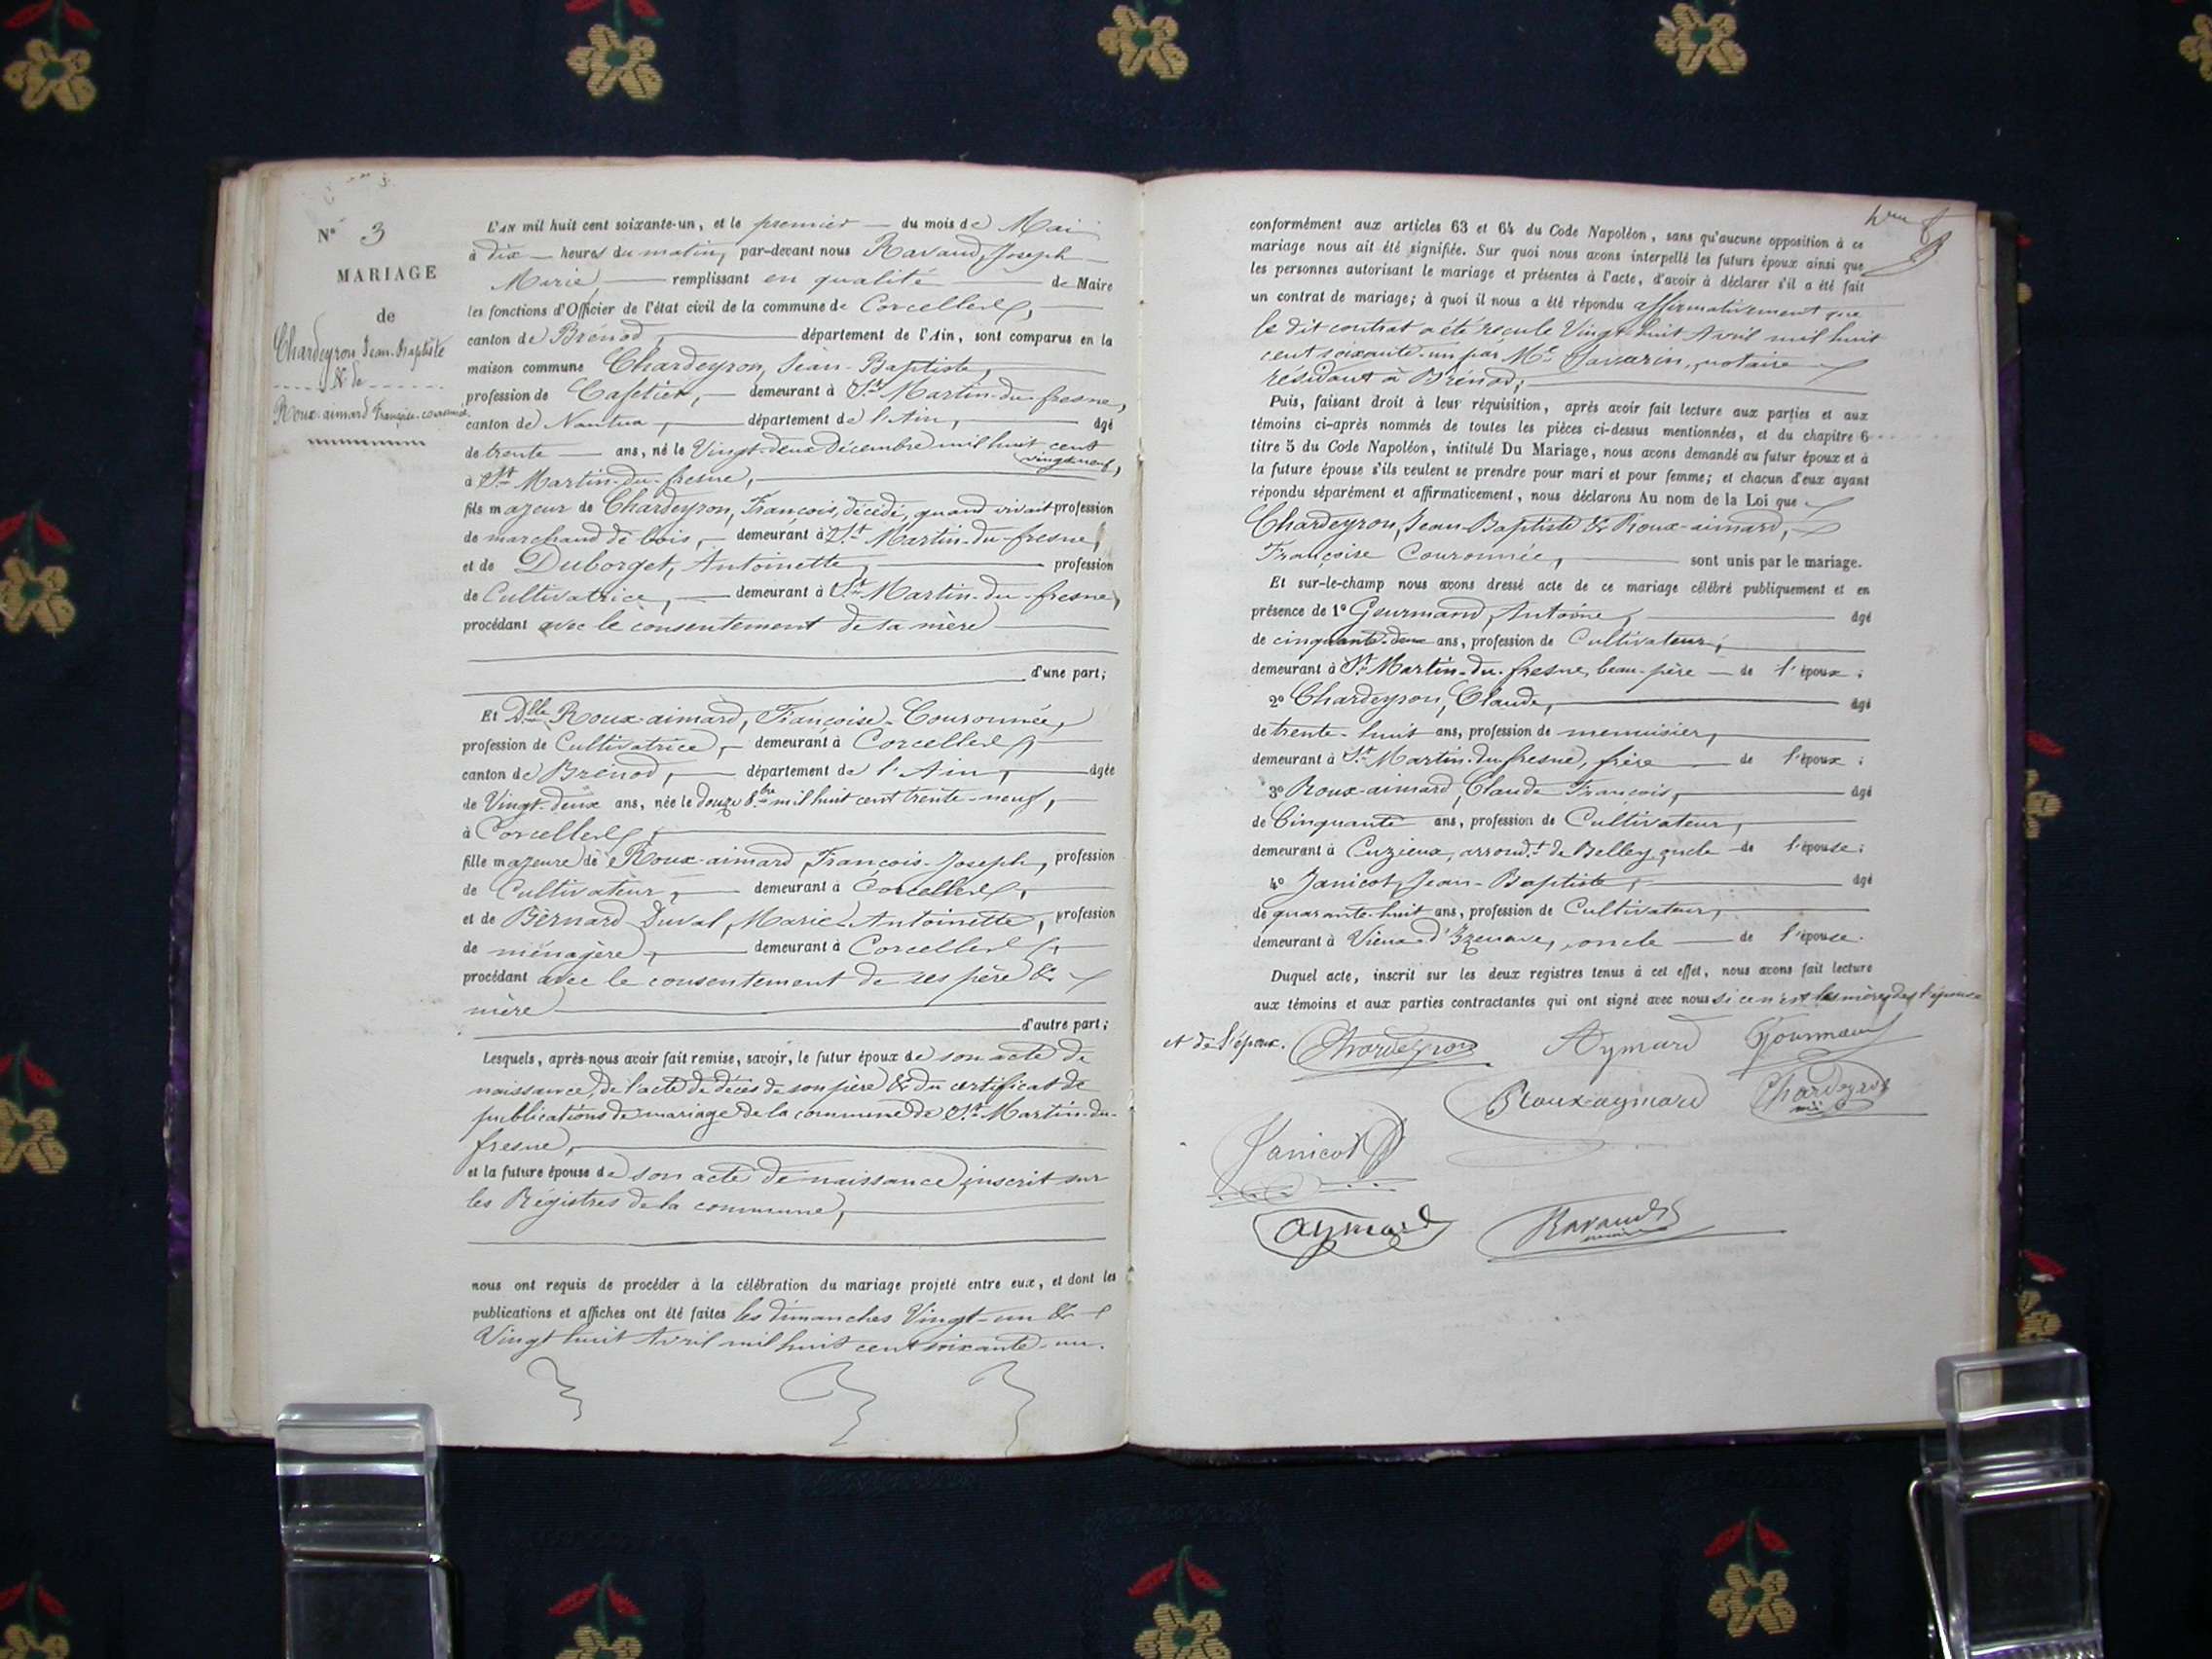 N° 3
MARIAGE
de
Chardeyron Jean-Baptiste
& de
Roux-aimard Françoise-couronnée
L'AN mil huit cent soixante-un, et le premier du mois de Mai
à dix heures du matin, par-devant nous Ravaud, Joseph
Marie, remplissant en qualité de Maire
les fonctions d'Officier de l'état civil de la commune de Corcelles,
canton de Brénod, département de l'Ain, sont comparus en la
maison commune Chardeyron, Jean-Baptiste,
profession de Cafetier, demeurant à St Martin-du-fresne,
canton de Nantua, département de l'Ain, âgé
de trente ans, né le Vingt-deux Décembre mil huit cent
vingt-neuf,
à St Martin-du-fresne,
fils majeur de Chardeyron, François, décédé, quand vivait profession
de marchand de bois, demeurant à St Martin-du-fresne,
et de Duborget, Antoinette, profession
de Cultivatrice, demeurant à St Martin-du-fresne,
procédant avec le consentement de sa mère
d'une part;
Et Dlle Roux-aimard, Françoise-Couronnée,
profession de Cultivatrice, demeurant à Corcelles,
canton de Brénod, département de l'Ain, âgée
de Vingt-deux ans, née le douze 8bre mil huit cent trente-neuf,
à Corcelles,
fille majeure de Roux-aimard, François-Joseph, profession
de Cultivateur, demeurant à Corcelles,
et de Bernard-Duval, Marie-Antoinette, profession
de ménagère, demeurant à Corcelles,
procédant avec le consentement de ses père &
mère
d'autre part;
Lesquels, après nous avoir fait remise, savoir, le futur époux de son acte de
naissance, de l'acte de décès de son père & du certificat de
publications de mariage de la commune de St Martin-du-
fresne,
et la future épouse de son acte de naissance, inscrit sur
les Régistres de la commune,
nous ont requis de procéder à la célébration du mariage projeté entre eux, et dont les
publications et affiches ont été faites les dimanches Vingt-un &
Vingt huit Avril mil huit cent soixante-un.
conformément aux articles 63 et 64 du Code Napoléon, sans qu'aucune opposition à ce
mariage nous ait été signifiée. Sur quoi nous avons interpellé les futurs époux ainsi que
les personnes autorisant le mariage et présentes à l'acte, d'avoir à déclarer s'il a été fait
un contrat de mariage; à quoi il nous a été répondu affirmativement que
le dit contrat a été reçu le Vingt-huit Avril mil huit
cent soixante-un par Me Savarin, notaire
résidant à Brénod;
Puis, faisant droit à leur réquisition, après avoir fait lecture aux parties et aux
témoins ci-après nommés de toutes les pièces ci-dessus mentionnées, et du chapitre 6
titre 5 du Code Napoléon, intitulé Du Mariage, nous avons demandé au futur époux et à
la future épouse s'ils veulent se prendre pour mari et pour femme; et chacun d'eux ayant
répondu séparément et affirmativement, nous déclarons Au nom de la Loi que
Chardeyron, Jean-Baptiste & Roux-aimard,
Françoise Couronnée, sont unis par le mariage.
Et sur-le-champ nous avons dressé acte de ce mariage célébré publiquement et en
présence de 1° Gourmand, Antoine, âgé
de cinquante-deux ans, profession de Cultivateur,
demeurant à St Martin-du-fresne, beau-père de l'époux;
2° Chardeyron, Claude, âgé
de trente-huit ans, profession de menuisier,
demeurant à St Martin-du fresne, frère de l'époux;
3° Roux-aimard, Claude François, âgé
de Cinquante ans, profession de Cultivateur,
demeurant à Cuzieux, arrondt de Belley, oncle de l'épouse;
4° Janicot, Jean-Baptiste, âgé
de quarante-huit ans, profession de Cultivateur,
demeurant à Vieux-d'Izenave, oncle de l'épouse.
Duquel acte, inscrit sur les deux registres tenus à cet effet, nous avons fait lecture
aux témoins et aux parties contractantes qui ont signé avec nous si ce n'est les mères de l'épouse
et de l'époux. Chardeyron Aymard Gourmand
Roux-aymard Chardeyron
Janicot
aymard Ravaud